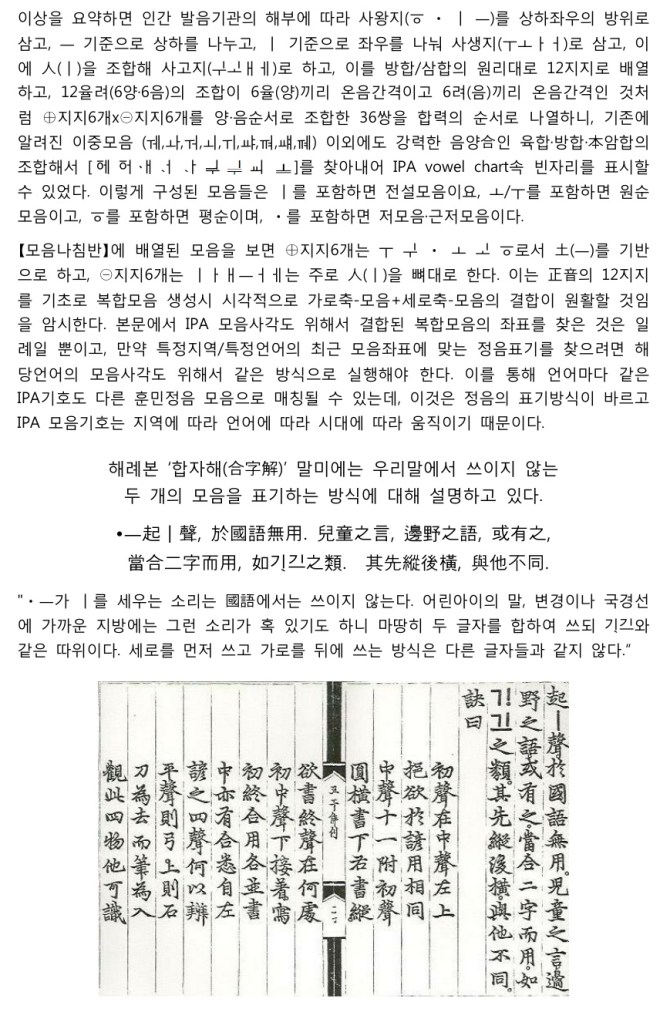 이상을 요약하면 인간 발음기관의 해부에 따라 사왕지(ㆆ ㆍ ㅣ ㅡ)를 상하좌우의 방위로
삼고, ㅡ 기준으로 상하를 나누고, ㅣ 기준으로 좌우를 나눠 사생지(ㅜㅗㅏㅓ)로 삼고, 이
에 人(ㅣ)을 조합해 사고지(ㅐㅔ)로 하고, 이를 방합/삼합의 원리대로 12지지로 배열
하고, 12율려(6양·6음)의 조합이 6율(양)끼리 온음간격이고 6려(음)끼리 온음간격인 것처
럼 ㊉지지6개x㊀지지6개를 양·음순서로 조합한 36쌍을 합력의 순서로 나열하니, 기존에
알려진 이중모음 이외에도 강력한 음양合인 육합·방합·本암합의
조합해서 를 찾아내어 IPA vowel chart속 빈자리를 표시할
수 있었다. 이렇게 구성된 모음들은 ㅣ를 포함하면 전설모음이요, ㅗ/ㅜ를 포함하면 원순
모음이고, ㆆ를 포함하면 평순이며, ㆍ를 포함하면 저모음·근저모음이다.
【모음나침반】에 배열된 모음을 보면 ㊉지지6개는 ㅜ ㆍ ㅗ ㆆ로서 土(ㅡ)를 기반
으로 하고, ㊀지지6개는 ㅣㅏㅐㅡㅓㅔ는 주로 人(ㅣ)을 뼈대로 한다. 이는 正音의 12지지
를 기초로 복합모음 생성시 시각적으로 가로축-모음+세로축-모음의 결합이 원활할 것임
을 암시한다. 본문에서 IPA 모음사각도 위해서 결합된 복합모음의 좌표를 찾은 것은 일
례일 뿐이고, 만약 특정지역/특정언어의 최근 모음좌표에 맞는 정음표기를 찾으려면 해
당언어의 모음사각도 위해서 같은 방식으로 실행해야 한다. 이를 통해 언어마다 같은
IPA기호도 다른 훈민정음 모음으로 매칭될 수 있는데, 이것은 정음의 표기방식이 바르고
IPA 모음기호는 지역에 따라 언어에 따라 시대에 따라 움직이기 때문이다.
해례본 '합자해(合字解)' 말미에는 우리말에서 쓰이지 않는
두 개의 모음을 표기하는 방식에 대해 설명하고 있다.
•ㅡ起ㅣ聲, 於國語無用. 兒童之言, 邊野之語, 或有之,
當合二字而用, 如ᄀᆝᄀᆜ之類. 其先縱後橫, 與他不同.
"ㆍㅡ가 ㅣ를 세우는 소리는 國語에서는 쓰이지 않는다. 어린아이의 말, 변경이나 국경선
에 가까운 지방에는 그런 소리가 혹 있기도 하니 마땅히 두 글자를 합하여 쓰되 ᄀᆝᄀᆜ와
같은 따위이다. 세로를 먼저 쓰고 가로를 뒤에 쓰는 방식은 다른 글자들과 같지 않다."
起ㅣ聲於國語無用。兒童之言邊
野之語或有之當合二字而用。如
ᄀᆝᄀᆜ之類。其先縱後橫。與他不同。
訣曰
初聲在中聲左上
挹欲於諺用相同
中聲十一附初聲
圓橫書下右書縱
欲書終聲在何處
初中聲下接着寫
初終合用各並書
中亦有合悉自左
諺之四聲何以辨
平聲則弓上則石
刀為去而筆為入
觀此四物他可識